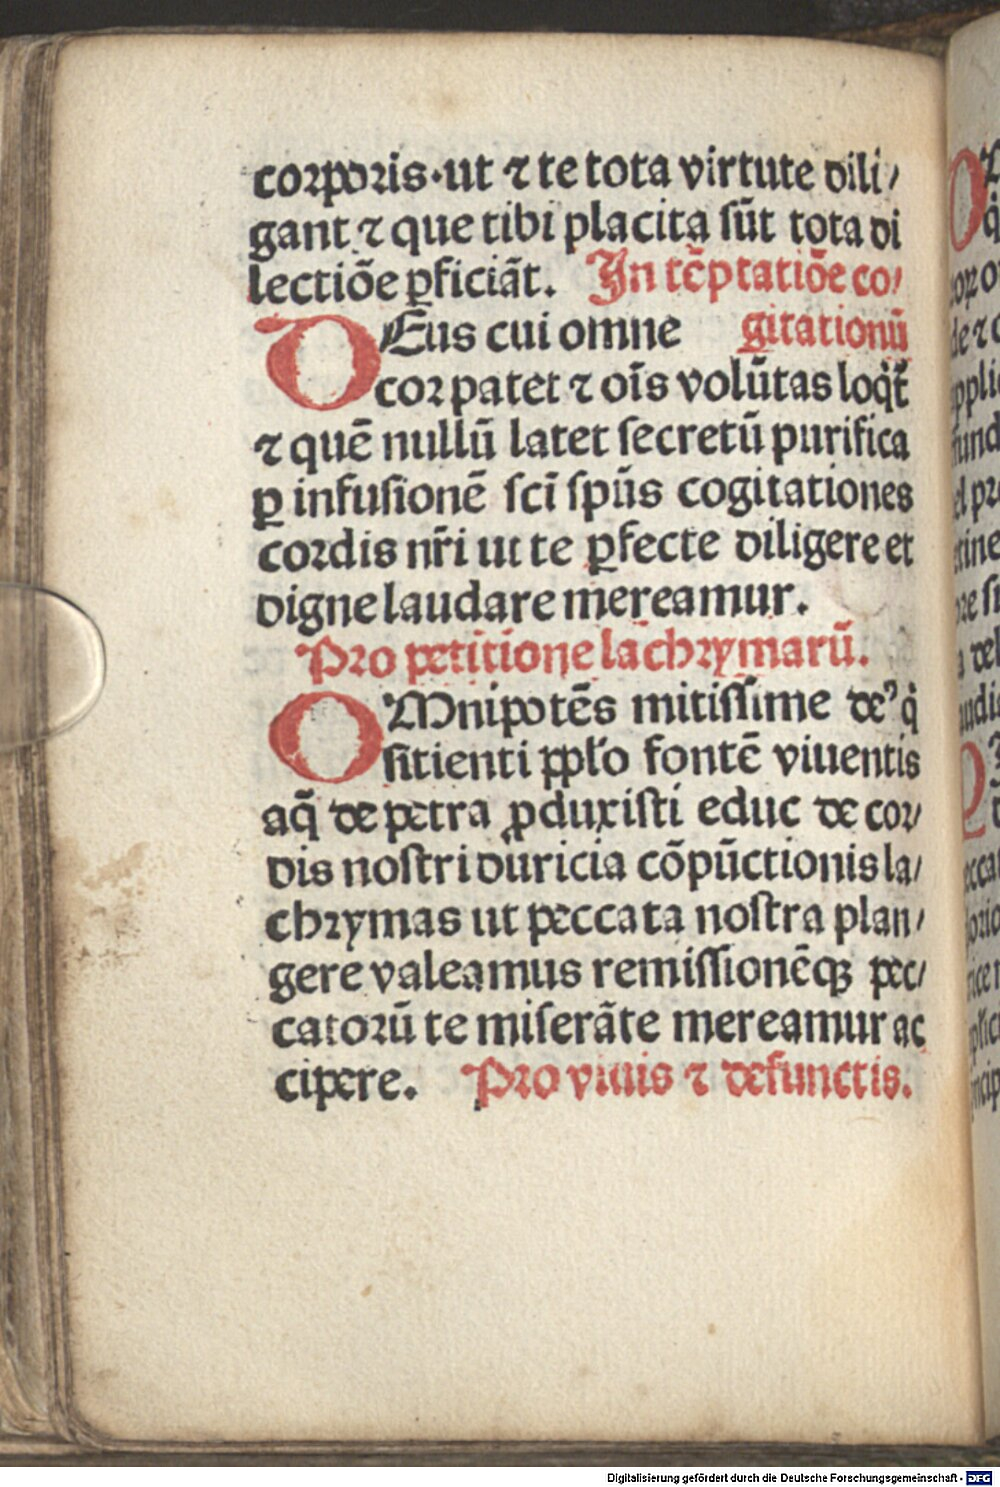 corporis·ut ⁊ te tota virtute dili/
gant ⁊ que tibi placita sūt tota di
lectiōe ꝑficiāt. In tēptatiōe co/
DEus cui omne gitationū
cor patet ⁊ oīs volūtas loqͥt̄
⁊ quē nullū latet secretū purifica
ꝑ infusionē scī spūs cogitationes
cordis nr̄i ut te ꝑfecte diligere et
digne laudare mereamur.
Pro petitione lachrymarū.
OMnipotēs mitissime deꝰ qͥ
sitienti pplo fontē viuentis
aq̄ de petra ꝓduxisti educ de cor/
dis nostri duricia cōpūctionis la/
chrymas ut peccata nostra plan/
gere valeamus remissionēqꝫ pec/
catorū te miserāte mereamur ac
cipere. Pro viuis ⁊ defunctis.
Digitalisierung gefördert durch die Deutsche Forschungsgemeinschaft - DFG